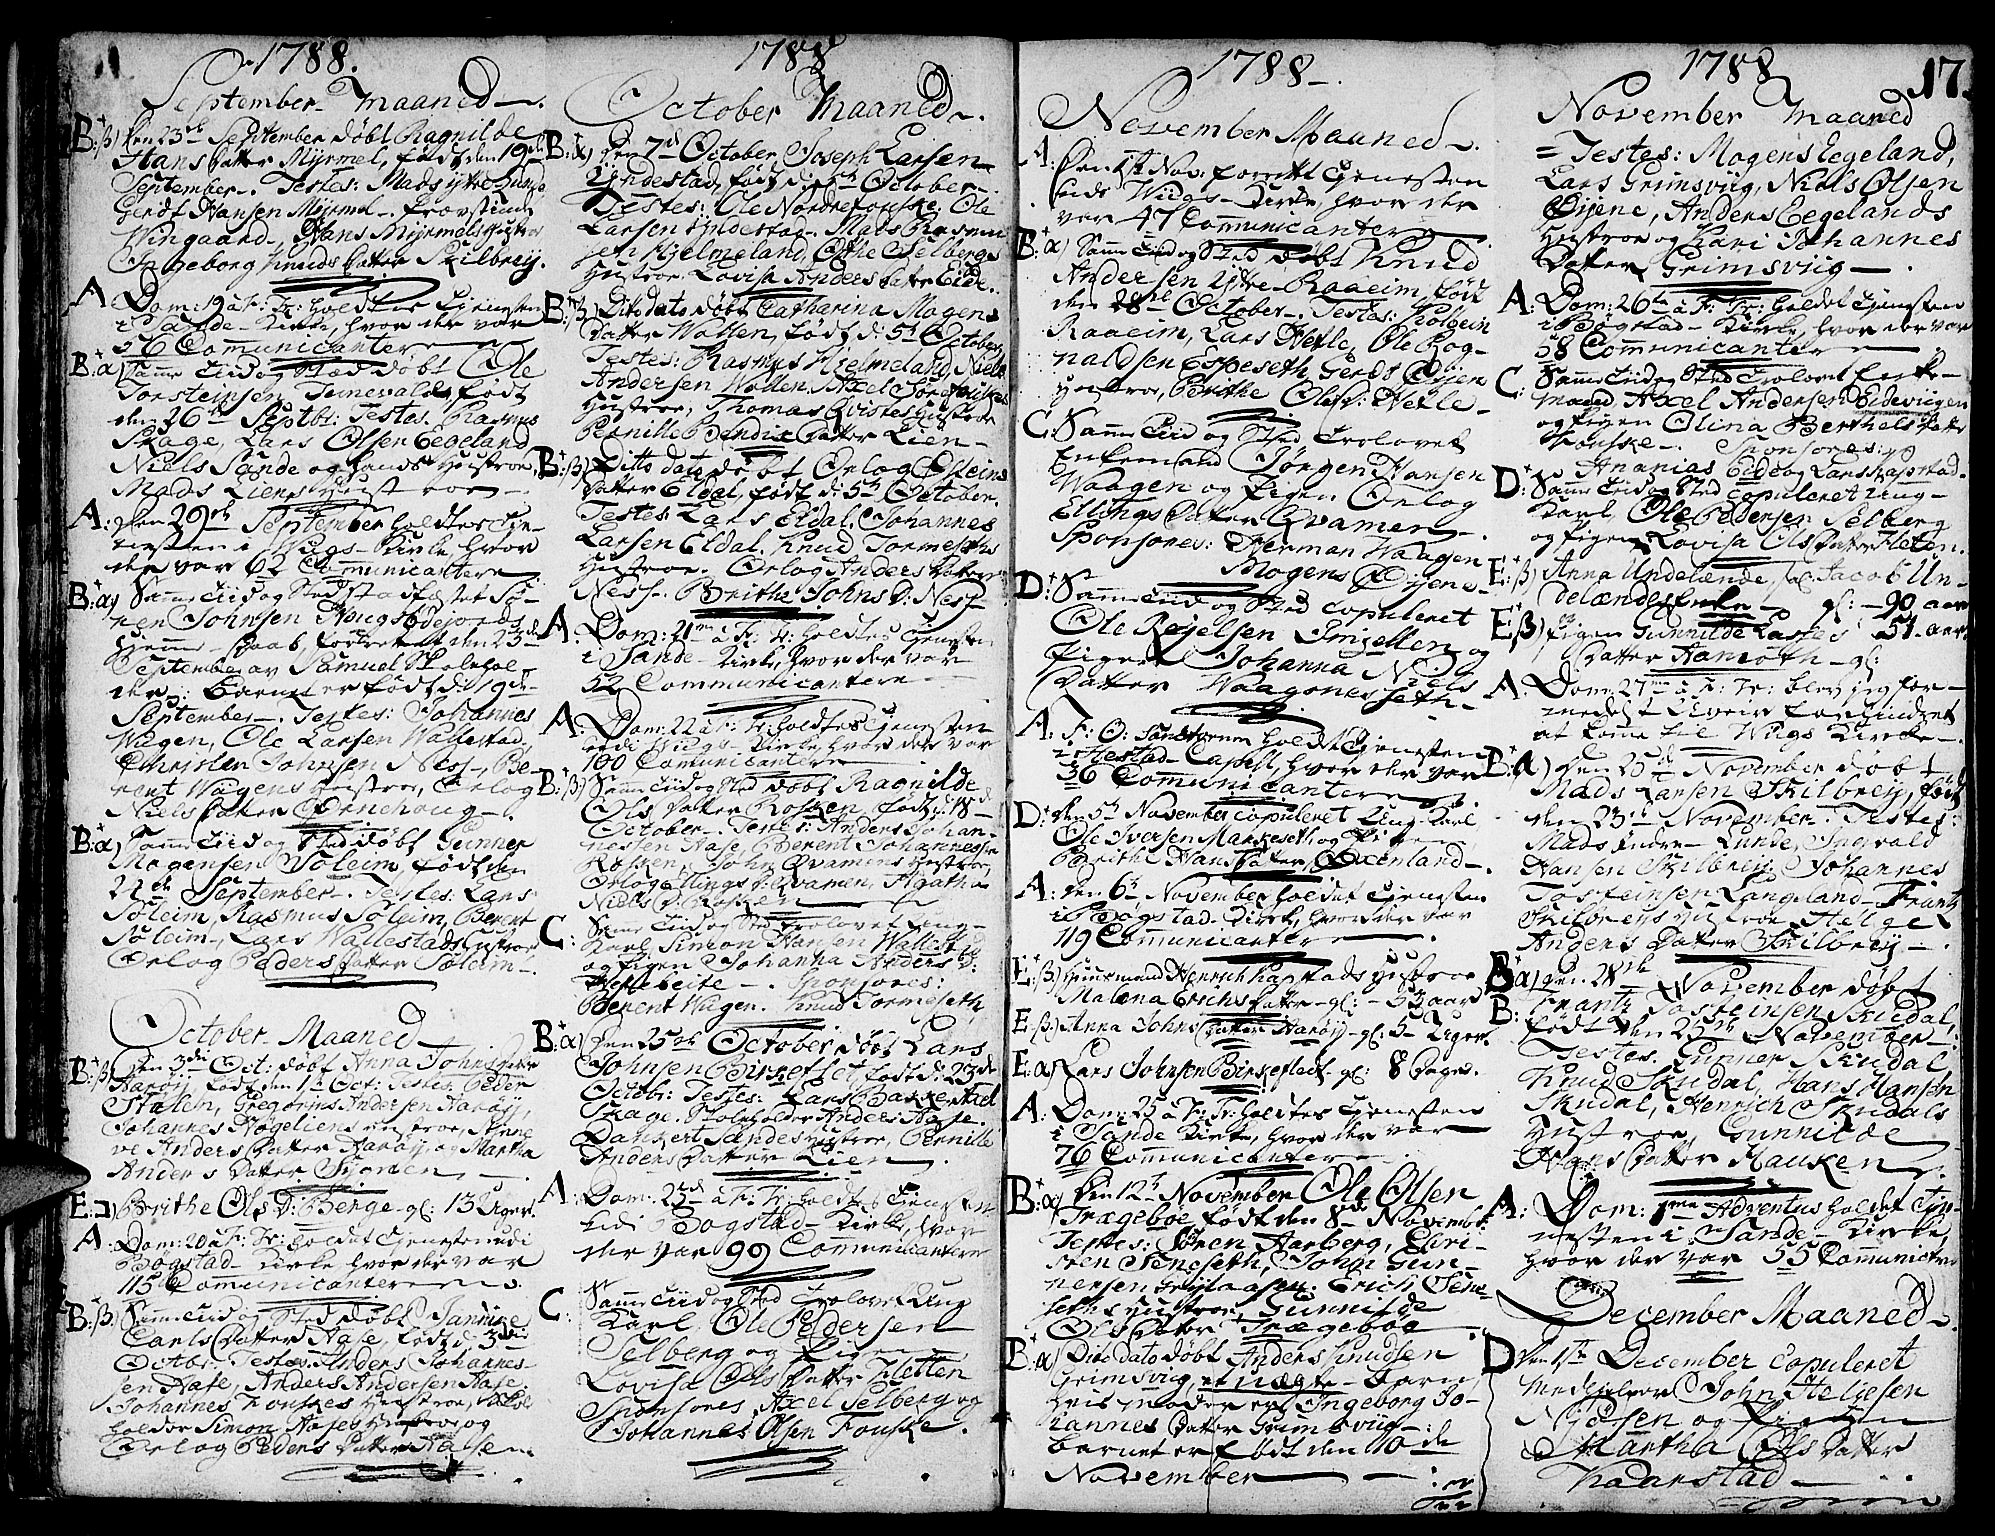 1788.
September Maaned
B: β) Den 23de September døbt Ragnilde
Hans Datter Myrmel, født den 19de
September. Testes: Mads ytre Lunde
Gerdt Hansen Myrmel Provstinde
Wingaard, Hans Myrmels Hustroe
Ingeborg Knuds Datter Skilbreij.
A Dom: 19 à F: Tr: holdtes Tjenesten
i Sande Kirke, hvor der var
56 Communicantere
B: α) Samme Tiid og Sted døbt Ole
Torsteinsen Tenevald, født
den 26de Septbr: Testes. Rasmus
Skage, Lars Olsen Eegeland
Niels Sande og hands Hustroe,
Mads Liens Hustroe
A: Den 29de September holdtes Tje-
nesten i Wiigs Kirke, hvor
der var 62 Communicantere
B: α) Samme Tiid og Sted stadfæstet Sø-
ren Johnsen Hougsbødejords
Hjemme-Daab, forrettet den 23de
September av Samuel Skolehol-
der: Barnet er født d: 19de
September. Testes: Johannes
Wagen, Ole Larsen Wallestad,
Christen Johnsen Ness, Be-
rent Wagens Hustroe, Orlog
Niels Datter Ørnehoug
B: α) Samme Tiid og Sted døbt Gunner
Mogensen Søleim, født den
22de September. Testes: Lars
Søleim, Rasmus Søleim, Berent
Søleim, Lars Wallestads Hustroe
Orlog Peders Datter Søleim.
October Maaned
B: β) Den 3die Oct: døbt Anna Johns Datter
Aarøij født den 1ste Oct: Testes: Peder
Stølen, Gregorius Andersen Aarøij,
Johannes Høgeliens Hustroe,
Anders Datter Aarøij, og Martha
Anders Datter
E: Brithe Ols D: Berge gl: 13 Uger.
A: Dom: 20 à F: Tr: holdet Tjenesten udi
Bogstad Kirke hvor der var
115 Communicantere
B: β) Samme Tiid og Sted døbt Jannike
Carls Datter Aase, født d: 3die
Octbr: Testes: Anders Johannes-
sen Aase, Anders Andersen Aase.
Johannes Fouskes Hustroe,
holder Simon Aases Hustroe og
Orlog Peders Datter Aasen
1788
October Maaned.
B: α) Den 7de October Joseph Larsen
Yndestad, født d: 5te October.
Testes: Ole Nordre Fouske. Ole
Larsen Yndestad. Mads Rasmus-
sen Hjelmeland, Otthe Selbergs
Hustroe. Lovisa Anders Datter Eide.
B: β) Dito dato døbt Catharina Mogens
Datter Wallen, født d: 5te October,
Testes: Rasmus Hjelmeland, Niels
Andersen Wallen. Axel
Hustroe, Thomas Qvistes Hustroe
Pernille Bendix Datter Lien
B: β) Ditto dato døbt Orlog Olleins
Datter Eldal, født d: 5te October.
Testes: Lars Eldal. Johannes
Larsen Eldal. Knud Tormeseths
Hustroe. Orlog Anders Datter
Ness. Brithe Johns D: Ness
A: Dom: 21me à F: Tr: holdtes Tjenesten
i Sande Kirke, hvor der var
52 Communicantere
A: Dom: 22 à F: Tr: holdtes Tjenesten
udi Wiigs Kirke, hvor der var
100 Comunicantere
B: β) Samme Tiid og Sted døbt Ragnilde
Ols Datter Rosken født d: 18de
October. Testes: Anders Johan-
nessen Aase, Berent Johannessen
Rosken, John Qvamens Hustroe,
Orlog Ellings D: Qvamen, Agatha
Niels D: Rosken
C: Samme Tiid og Sted trolovet Ung-
Karl Simon Hansen Wallestad
og Pigen Johanna Anders D:
Sponsores:
Berent Wagen. Knud Tormeseth
B: α) Den 25de October døbt Lars
Johnsen Birkeflet født d: 23de
Octobr: Testes: Lars Bakkestad
Skage. Skoleholder Anders Aase.
Dankert Sandes Hustroe, Pernille
Anders Datter Lien
A: Dom: 23de à F: Tr: holdtes Tjenesten
udi Bogstad Kirke, hvor
der var 99 Communicantere
C: Samme Tiid og Sted trolovet Ung
Karl Ole Pedersen
Selberg og Pigen
Lovisa Ols Datter Hetten
Sponsores Axel Selberg og
Johannes Olsen Fouske.
1788
November Maaned.
A: Den 1ste Nov: forrettet Tjenesten
udi Wiigs Kirke, hvor der
var 47 Communicantere
B: α) Samme Tiid og Sted døbt Knud
Andersen Ystre Raaeim, født
den 28de October. Testes: Kolbein
Raaeim, Lars Hetle, Ole Rog-
naldsen Espeseth, Gerds Øijens
Hustroe, Brithe Ols D: Hetle
C: Samme Tiid og Sted trolovet
Enkemand Jørgen Hansen
Waagen og Pigen Orlog
Ellings Datter Qvamen
Sponsores: Herman Waagen
Mogens Øijene
D: Samme Tiid og Sted copuleret
Ole og
Pigen Johanna Niels
Datter Waagoneseth
A: F: O: Sanctorum holdt Tjenesten
i Hestad Capell, hvor der var
36 Comunicantere
D: Den 5te November copuleret Ung Karl
Ole Iversen Markeseth og Pigen
Brithe Hans Datter
A: Den 6te November holdet Tjenesten
i Bogstad Kirke, hvor der var
119 Communicantere
E: β) Huusmand Henrich Kapstads Hustroe
Malena Erichs Datter gl: 53 aar
E: β) Anna Johns Datter Aarøij gl: 5 Uger.
E: α) Lars Johnsen Birkeflet gl: 8 Dage.
A: Dom: 25 à F: Tr: holdtes Tjenesten
i Sande Kirke, hvor der var
76 Communicantere
B: α) Den 12te November Ole Olsen
Trægebøe født den 8de Novembr:
Testes: Søren Aarberg, Chri-
sten Teneseth, John Gun-
nersen Erich Tene-
seths Hustroe, Gunnilde
Ols Datter Trægebøe
B: α) Dito Dato døbt Anders Knudsen
Grimsviig, et uægte Barn,
hvis moder er Ingeborg Jo-
hannes Datter Grimsviig
barnet er født den 10de
November
1788
17.
November Maaned
= Testes: Mogens Eegeland,
Lars Grimsviig, Niels Olsen
Øijene, Anders Eegelands
Hustroe og Kari Johannes
Datter Grimsviig
A: Dom: 26te à F: Tr: holdet Tjenesten
i Bogstad Kirke, hvor der var
58 Communicantere
C: Samme Tiid og Sted trolovet Enke-
mand Axel Andersen Eideviigen
og Pigen Olina Berthels Datter
Fouske Sponsores:
Ananias Eide og Lars Kapstad.
D: Samme Tiid og Sted copuleret Ung-
Karl Ole Pedersen Selberg
og Pigen Lovisa Ols Datter Heten.
E: β) Anna Undelænde, sal: Jacob Un-
delændes Enke gl: 90 aar
E: β) Pigen Gunnilde Lastes 51 aar
Datter Hamroth gl:
A Dom: 27me à F: Tr: blev jeg for-
medelst Uveir forhindret
at kome til Wiigs Kirke
B: α) Den 25de November døbt
Mads Larsen Skilbreij, født
den 23de November. Testes:
Mads Indre Lunde, Ingvald
Hansen Skilbreij, Johannes
Tosteinsen Langeland, Frantz
Skilbreijs Hustroe Helge
Anders Datter Skilbreij
B: α) Den 28de November døbt
B: Frantz Tosteinsen Skudal,
født den 25de November:
Testes. Gunner Skudal
Knud Skudal, Hans Hansen
Skudal, Henrich Skudals
Hustroe, Gunnilde
Hans Datter Mauken
A: Dom: 1me Adventus holdet Tje-
nesten i Sande Kirke,
hvor der var 55 Communictre
December Maaned.
D Den 1ste December Copuleret
John Heljesen
og Pigen
Martha Ols Datter
Kaarstad